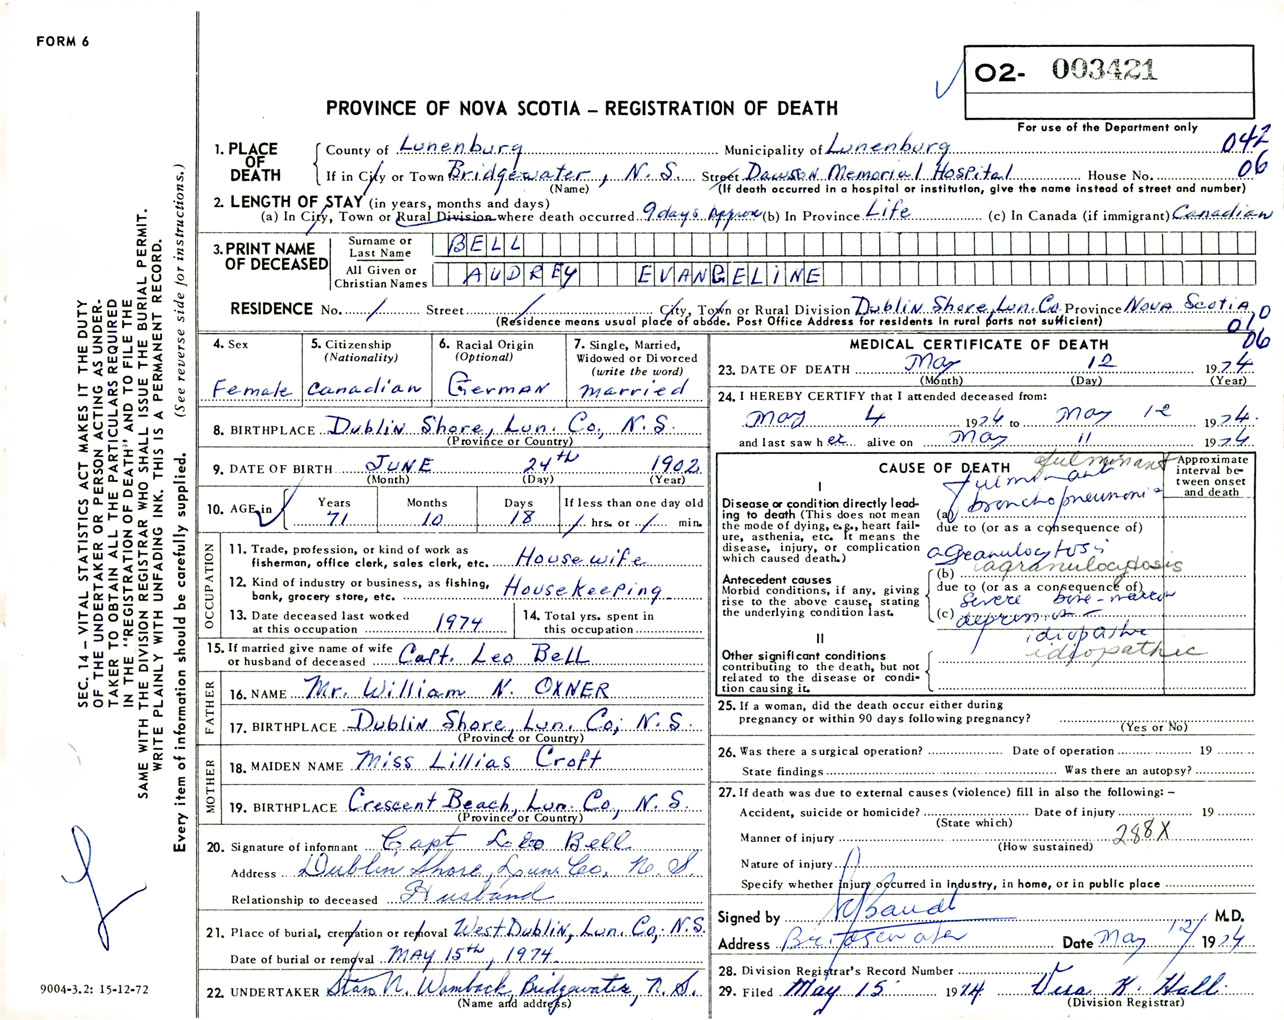 FORM 6
O2- 003421
PROVINCE OF NOVA SCOTIA – REGISTRATION OF DEATH
For use of the Department only
042
06
1. PLACE OF DEATH
County of Lunenburg Municipality of Lunenburg
If in City or Town Bridgewater, N. S. Street Dawson Memorial Hospital House No.
(Name) (If death occurred in a hospital or institution, give the name instead of street and number)
2. LENGTH OF STAY (in years, months and days)
(a) In City, Town or Rural Division where death occurred 9 days Approx (b) In Province Life (c) In Canada (if immigrant) Canadian
3. PRINT NAME OF DECEASED
Surname or Last Name BELL
All Given or Christian Names AUDREY EVANGELINE
RESIDENCE No. / Street / City, Town or Rural Division Dublin Shore, Lun. Co Province Nova Scotia
(Residence means usual place of abode. Post Office Address for residents in rural parts not sufficient)
010
06
4. Sex
Female
5. Citizenship
(Nationality)
Canadian
6. Racial Origin
(Optional)
German
7. Single, Married,
Widowed or Divorced
(write the word)
Married
8. BIRTHPLACE Dublin Shore, Lun. Co, N.S.
(Province or Country)
9. DATE OF BIRTH JUNE 24th 1902
(Month) (Day) (Year)
10. AGE in
Years Months Days If less than one day old
71 10 18 / hrs. or / min.
OCCUPATION
11. Trade, profession, or kind of work as
fisherman, office clerk, sales clerk, etc. Housewife
12. Kind of industry or business, as fishing,
bank, grocery store, etc. Housekeeping
13. Date deceased last worked
at this occupation 1974
14. Total yrs. spent in
this occupation
15. If married give name of wife
or husband of deceased Capt. Leo Bell
FATHER
16. NAME Mr. William N. OXNER
17. BIRTHPLACE Dublin Shore, Lun. Co; N.S.
(Province or Country)
MOTHER
18. MAIDEN NAME Miss Lillias Croft
19. BIRTHPLACE Crescent Beach, Lun. Co., N.S.
(Province or Country)
20. Signature of informant Capt Leo Bell
Address Dublin Shore, Lun. Co. N. S.
Relationship to deceased Husband
21. Place of burial, cremation or removal West Dublin, Lun. Co; N.S.
Date of burial or removal MAY 15th, 1974
22. UNDERTAKER N. Womback, Bridgewater, N. S.
(Name and address)
MEDICAL CERTIFICATE OF DEATH
23. DATE OF DEATH May 12 1974
(Month) (Day) (Year)
24. I HEREBY CERTIFY that I attended deceased from:
May 4 1974 to May 12 1974
and last saw her alive on May 11 1974
CAUSE OF DEATH
Approximate interval between onset and death
I
Disease or condition directly leading to death (This does not mean the mode of dying, e.g., heart failure, asthenia, etc. It means the disease, injury, or complication which caused death.)
fulminant
fulminant
(a) bronchopneumonia
due to (or as a consequence of)
agranulocytosis
Antecedent causes
Morbid conditions, if any, giving rise to the above cause, stating the underlying condition last.
(b) agranulocytosis
due to (or as a consequence of)
severe bone-marrow
(c) depression
II
Other significant conditions
contributing to the death, but not related to the disease or condition causing it.
idiopathic
idiopathic
25. If a woman, did the death occur either during
pregnancy or within 90 days following pregnancy?
(Yes or No)
26. Was there a surgical operation? Date of operation 19
State findings Was there an autopsy?
27. If death was due to external causes (violence) fill in also the following: –
Accident, suicide or homicide? Date of injury 19
(State which)
Manner of injury 288X
(How sustained)
Nature of injury
Specify whether injury occurred in industry, in home, or in public place
Signed by M.D.
Address Bridgewater Date May 12/ 1974
28. Division Registrar's Record Number
29. Filed May 15 1974 Vera K. Hall
(Division Registrar)
SEC. 14 – VITAL STATISTICS ACT MAKES IT THE DUTY
OF THE UNDERTAKER OR PERSON ACTING AS UNDER-
TAKER TO OBTAIN ALL THE PARTICULARS REQUIRED
IN THE "REGISTRATION OF DEATH" AND TO FILE THE
SAME WITH THE DIVISION REGISTRAR WHO SHALL ISSUE THE BURIAL PERMIT.
WRITE PLAINLY WITH UNFADING INK. THIS IS A PERMANENT RECORD.
Every item of information should be carefully supplied. (See reverse side for instructions.)
9004-3.2: 15-12-72